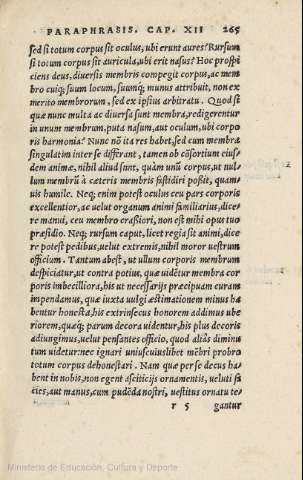 PARAPHRASIS. CAP. XII 265
sed si totum corpus sit oculus, ubi erunt aures? Rursum
si totum corpus sit auricula, ubi erit nasus? Hoc prospi
ciens deus, diuersis membris compegit corpus, ac mem
bro cuiq; suum locum, suumq; munus attribuit, non ex
merito membrorum, sed ex ipsius arbitratu. Quod si
quæ nunc multa ac diuersa sunt membra, redigerentur
in unum membrum, puta nasum, aut oculum, ubi corpo
ris harmonia? Nunc nō ita res habet, sed cum membra
singulatim inter se differant, tamen ob cōsortium eius/
dem animæ, nihil aliud sunt, quàm unū corpus, ut nul/
lum membrū à cæteris membris fastidiri poßit, quam/
uis humile. Neq; enim potest oculus ceu pars corporis
excellentior, ac uelut organum animi familiarius, dice
re manui, ceu membro craßiori, non est mihi opus tuo
præsidio. Neq; rursum caput, licet regia sit animi, dice
re potest pedibus, uelut extremis, nihil moror uestrum
officium. Tantum abest, ut ullum corporis membrum
despiciatur, ut contra potius, quæ uidētur membra cor
poris imbecilliora, his ut necessarijs præcipuam curam
impendamus, quæ iuxta uulgi æstimationem minus ha
bentur honesta, his extrinsecus honorem addimus ube
riorem, quæq; parum decora uidentur, his plus decoris
adiungimus, uelut pensantes officio, quod aliâs diminu
tum uidetur: nec ignari uniuscuiuslibet mēbri probro
totum corpus dehonestari. Nam quæ per se decus ha/
bent in nobis, non egent ascitijs ornamentis, ueluti fa
cies, aut manus, cum pudēda nostri, uestitus ornatu te/
r 5 gantur
Ministerio de Educación, Cultura y Deporte